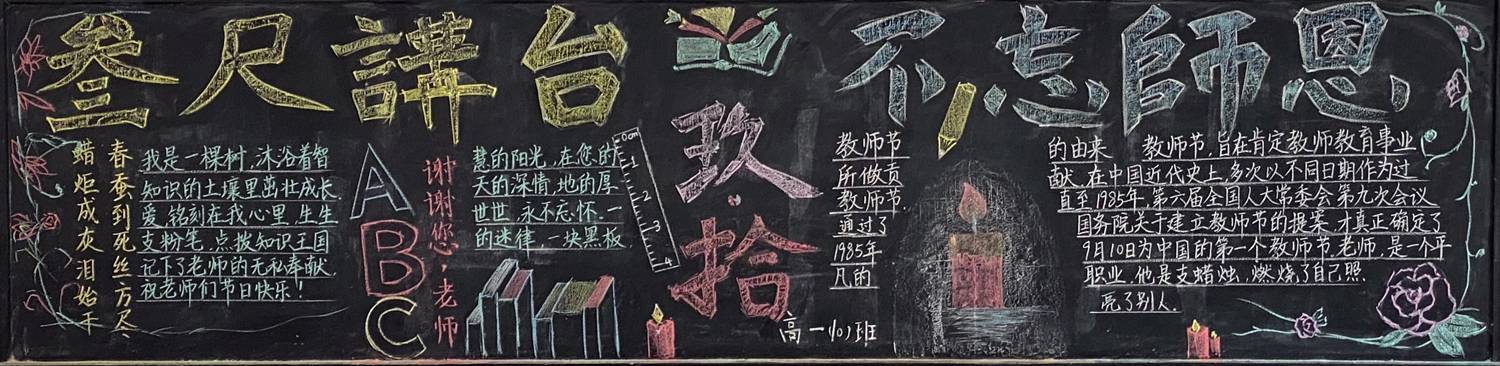 叁尺講台 不忘師恩
春蚕到死丝方尽
蜡炬成灰泪始干
我是一棵树,沐浴着智
慧的阳光,在您的
知识的土壤里茁壮成长
天的深情,地的厚
爱,铭刻在我心里,生生
世世,永不忘怀.一
支粉笔,点拨知识王国
的迷律,一块黑板
记下了老师的无私奉献.
祝老师们节日快乐!
A
B
C
谢谢您,老师
0cm
1
2
3
4
玖·拾
高一(10)班
教师节
的由来
教师节,旨在肯定教师教育事业
所做贡
献.在中国近代史上,多次以不同日期作为过
教师节.
直至1985年,第六届全国人大常委会第九次会议
通过了
国务院关于建立教师节的提案,才真正确定了
1985年
9月10日为中国的第一个教师节.老师,是一个平
凡的
职业,他是支蜡烛,燃烧了自己照
亮了别人.